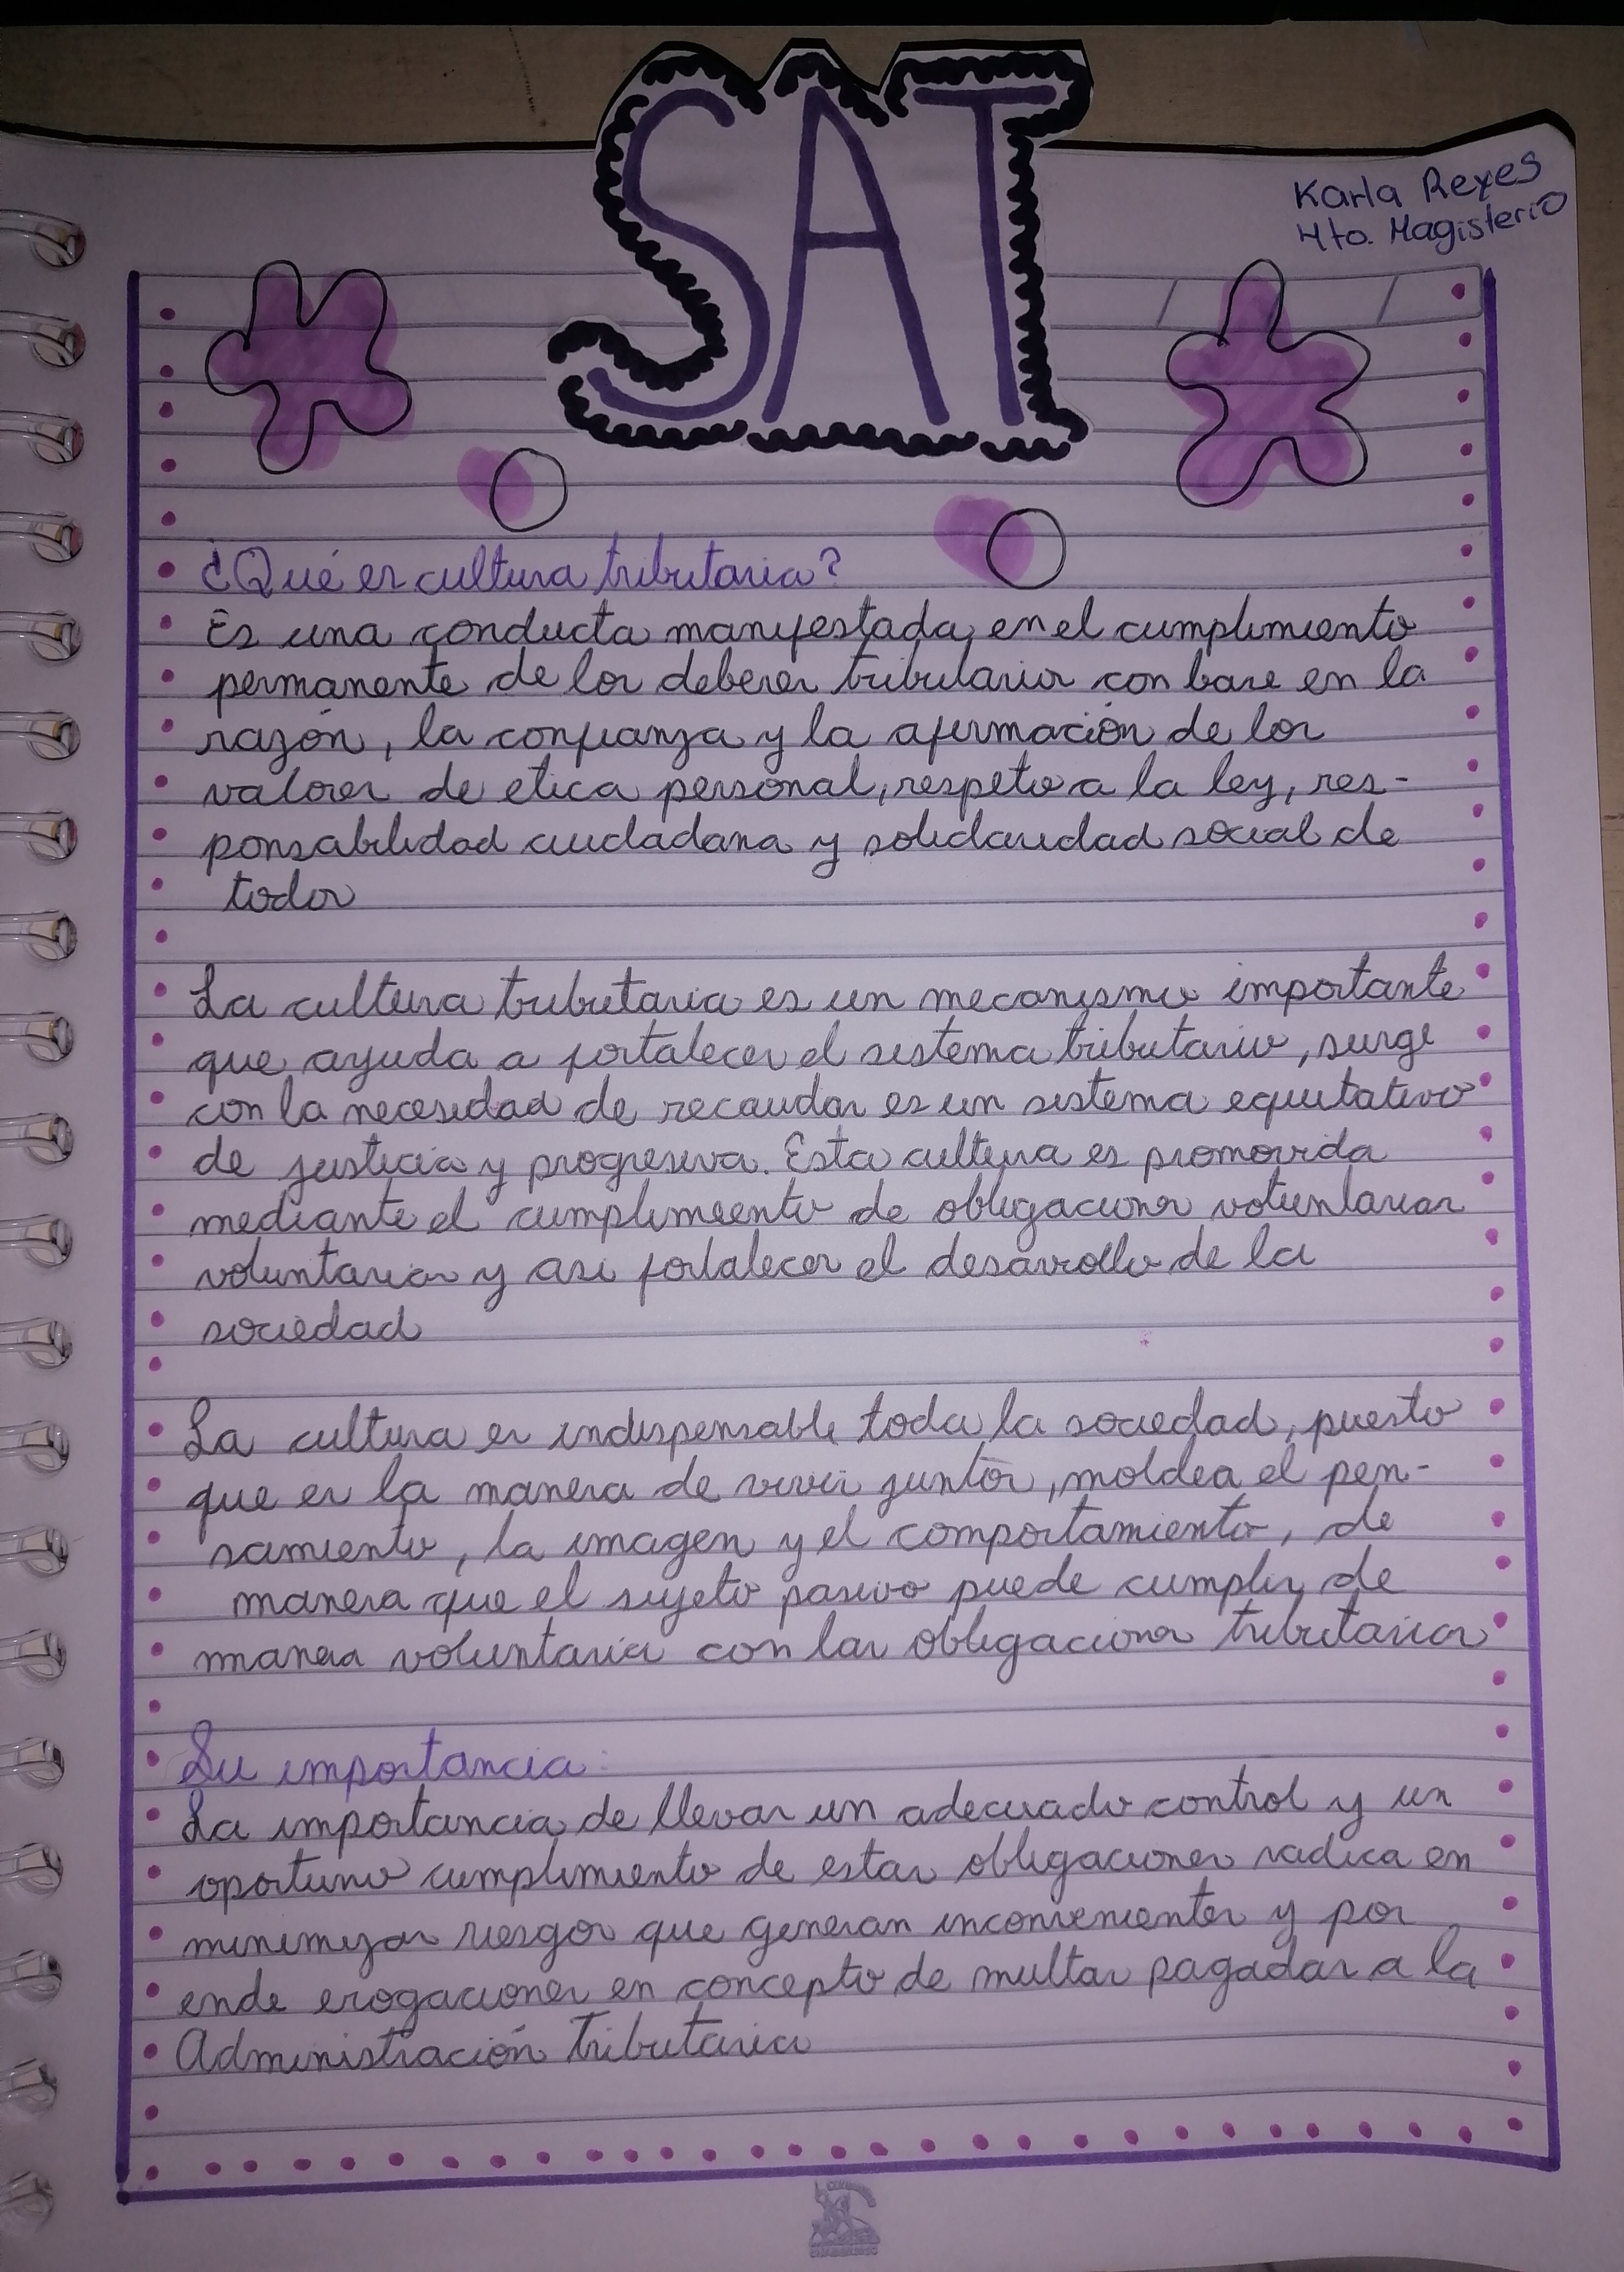 SAT
Karla Reyes
4to. Magisterio
¿Qué es cultura tributaria?
Es una conducta manifestada en el cumplimiento
permanente de los deberes tributarios con base en la
razón, la confianza y la afirmación de los
valores de etica personal, respeto a la ley, res-
ponsabilidad ciudadana y solidaridad social de
todos
La cultura tributaria es un mecanismo importante
que ayuda a fortalecer el sistema tributario, surge
con la necesidad de recaudar es un sistema equitativo
de justicia y progresiva. Esta cultura es promovida
mediante el cumplimiento de obligaciones voluntarias
voluntarias y asi fortalecer el desarrollo de la
sociedad
La cultura es indispensable toda la sociedad, puesto
que es la manera de vivir juntos, moldea el pen-
samiento, la imagen y el comportamiento, de
manera que el sujeto pasivo puede cumplir de
manera voluntaria con las obligaciones tributarias
Su importancia:
La importancia de llevar un adecuado control y un
oportuno cumplimiento de estas obligaciones radica en
minimizar riesgos que generan inconvenientes y por
ende erogaciones en concepto de multas pagadas a la
Administración Tributaria